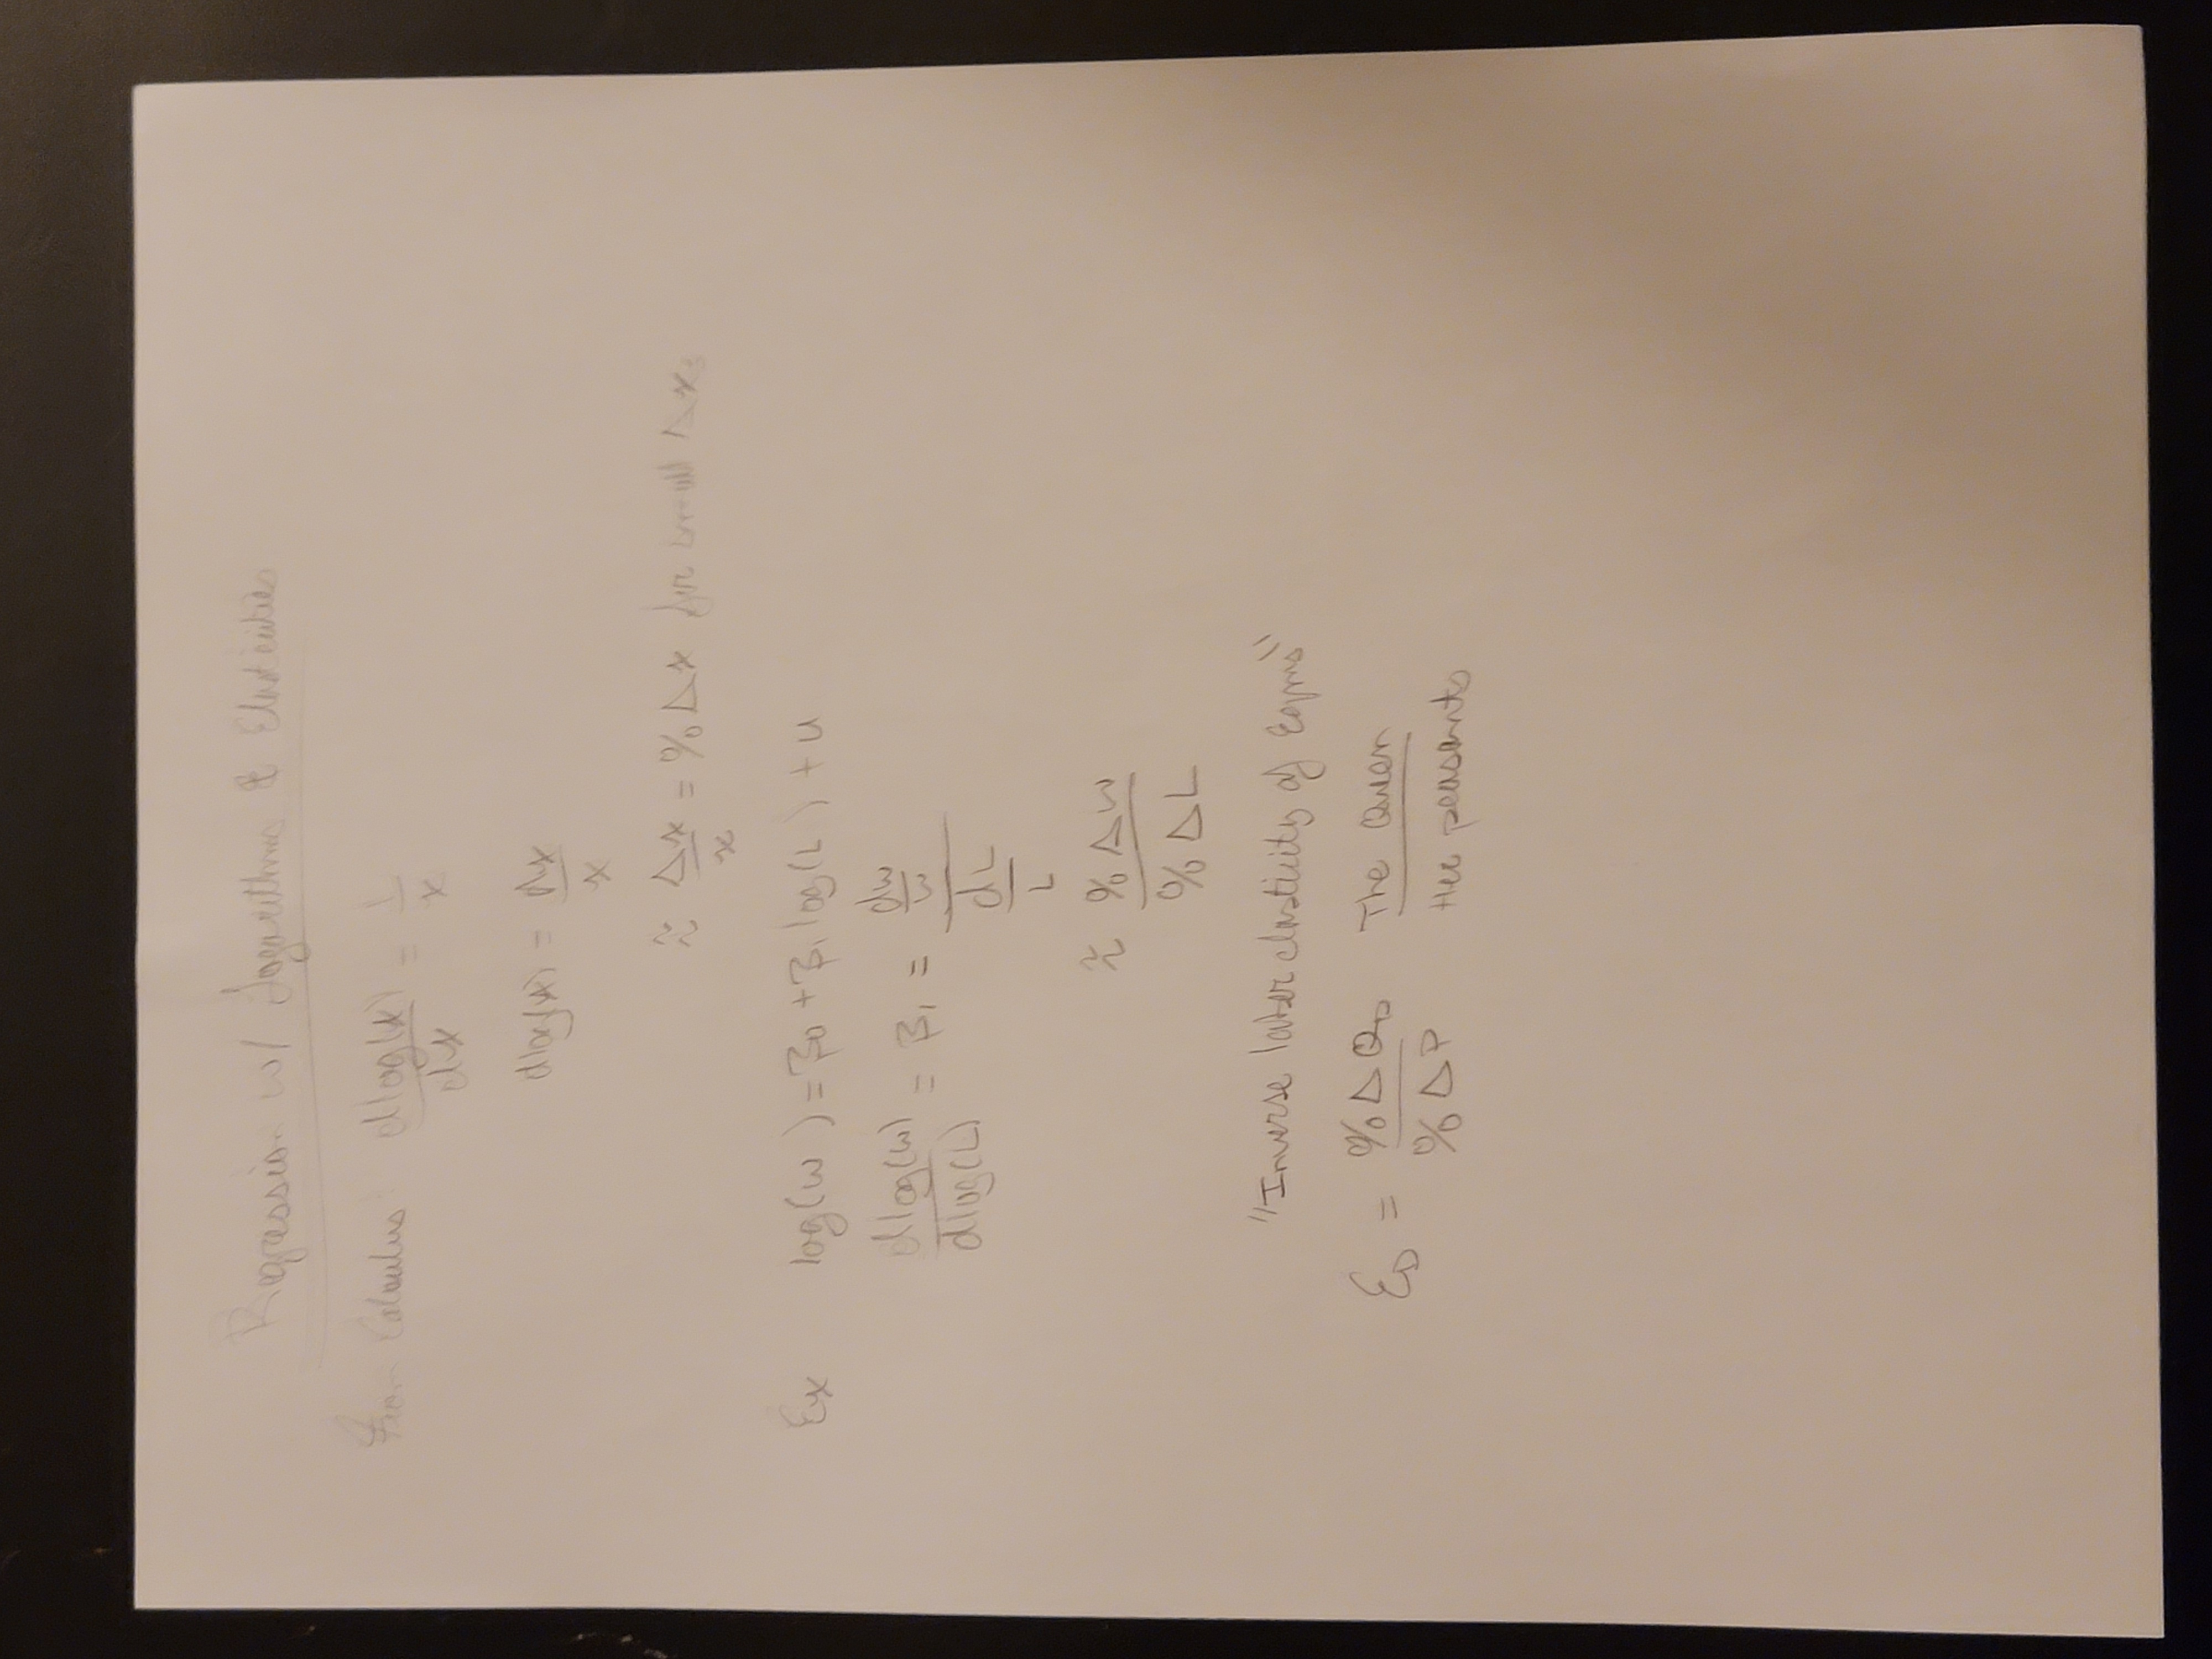 Regression w/ Logarithms & Elasticities
From Calculus dlog(x)/dx = 1/x
dlog(x) = dx/x
≈ Δx/x = %Δx for small Δx
Ex log(w) = β0 + β1 log(L) + u
dlog(w)/dlog(L) = β1 = (dw/w)/(dL/L)
≈ %Δw/%ΔL
"Inverse labor elasticity of"
ED = %ΔQD/%ΔP The Queen/Her peasants